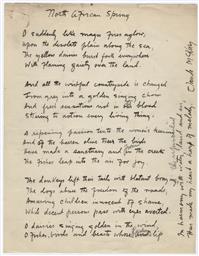 North African Spring
O suddenly like magic fires aglow,
Upon the desolate plain along the sea,
The yellow daisies burst forth everywhere
With flaming gaiety over the land.
And all the wistful countryside is changed
From grey into a golden singing choir
And fresh sensations rush in the blood
Stirring to action every living thing.
A repining passion tints the women's
And of the heaven blue there the birds
have made a sanctuary and in the creek
The fishes leap into the air for joy.
The donkeys lift their tails with blatant bray
The dogs abuse the freedom of the roads
Amazing children innocent of shame,
While decent persons pass with eyes averted.
O daisies singing golden in the wind,
O fishes, birds and beasts whose
Claude McKay
In harmony with
Has made my heart a harp of melody.